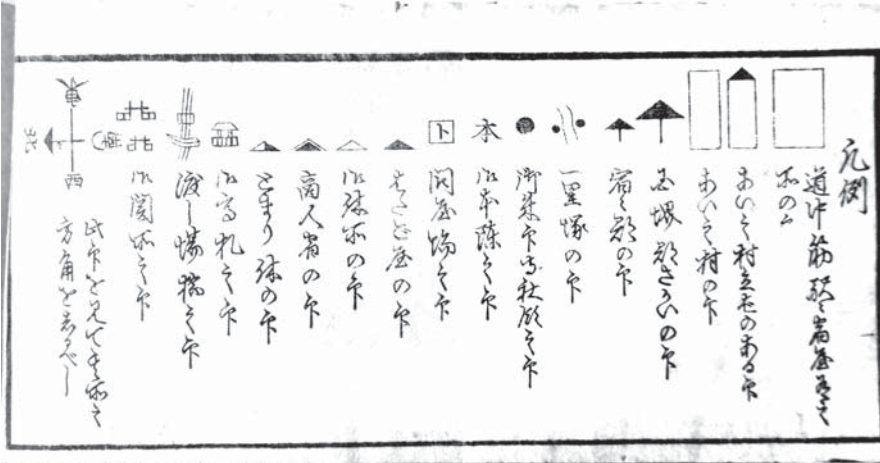 凡例
道中筋駅々宿屋有之
所の印
あいの村立場のある印
あいの村の印
国堺郡さかいの印
宿々郡の印
一里塚の印
御朱印寺社領之印
御本陣之印
本
問屋場之印
ト
はたご屋の印
御休所の印
商人宿の印
とまり休の印
御高札之印
渡し場橋之印
御関所之印
此印を見て其所之
方角を志るべし
東
西
南
北